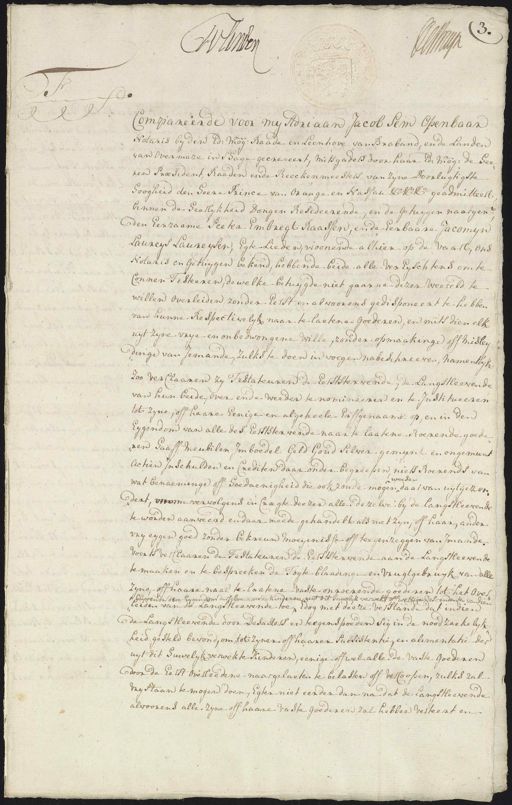 3.
Compareerde voor my Adriaan Jacob Sem Ossenbaar
Notaris by den Ed: Mog: Raade en Leenhove van Braband, en de Landen
van Overmaze in s'Hage gecreeert, mitsgaders door haar Ed: Mog: de Hee-
ren President, Raaden ende Reeckenmeesters van Zyne Doorlugtigste
Hoogheid den Heere Prince van Orange en Nassau &c &c &c geadmitteert
binnen de Heerlykheid Dongen Resideerende, en de Getuygen naargen:t
den Eerzaame Peeter Embregt Raassen, en de Eerbaare Jacomyn
Laureys Laureysen, Egte Lieden, woonende alhier op de Vaart, ons
Notaris en Getuygen bekend, hebbende beide alle Vereyschtens om te
Connen Testeeren, dewelke betuygde niet gaarne dezer Weereld te
willen overleiden zonder Eerst en alvoorens gedisponeert te hebben
van hunne Respectivelyk naar te laetene Goederen, en mits dien elk
uyt zyne vrye en onbedwongene wille, zonder opmaakinge off misley
dinge van Jemande, zulks te doen in voegen nabeschreeven, namentlyk
Zoo verclaaren Zy Testateuren de Eerststervende, de Langstleevende
van hun beide, over ende weeder te nomineeren en te Institueeren
tot zyne, off haare Eenige en algeheele Erffgenaam op, en in den
Eygendom van alle des Eerststervende naar te laetene Roerende, goede-
ren Haeff Meubilen Imboedel Geld Goud Silver gemunt en ongemunt
Actien Inschulden en Crediten daar onder begreepen niets Roerends van
wat benaeminge off hoedaenigheid die ook zoude mogen worden, daar van uytgezon
dert, om vervolgens in Cragte deezer alle dezelve by de Langstleevende
te worden aanveerd en daar meede gehandelt als met zyn, off haar, ander
vry eygen goed zonder bekreun moeyenisse off tegenzeggen van Jmande.
Voorts verclaaren de Testateuren de Eerststervende aan de Langstleevende
te maaken en te bespreeken de Togte blading en Vrugtgebruyk van alle
zyne off haare naar te laatene vaste onroerende goederen tot het Over
leiden van de Langstleevende toe, dog met deeze verstande dat indien
de Langstleevende door desastres en tegenspoeden sig in de noodzaekelyk
heid gesteld bevond, om tot zyne off haare Subsistentie, en alimentatie der
uyt dit Huwelyk verwekte Kinderen, eenige off wel alle de vaste goederen
door de Eerst Overleedene naargelaeten te belasten off verkoopen, zulks zal
vrystaan te mogen doen, Egter niet eerder dan na dat de Langstleevende
alvoorens alle zyne off haare vaste goederen zal hebben verteert en